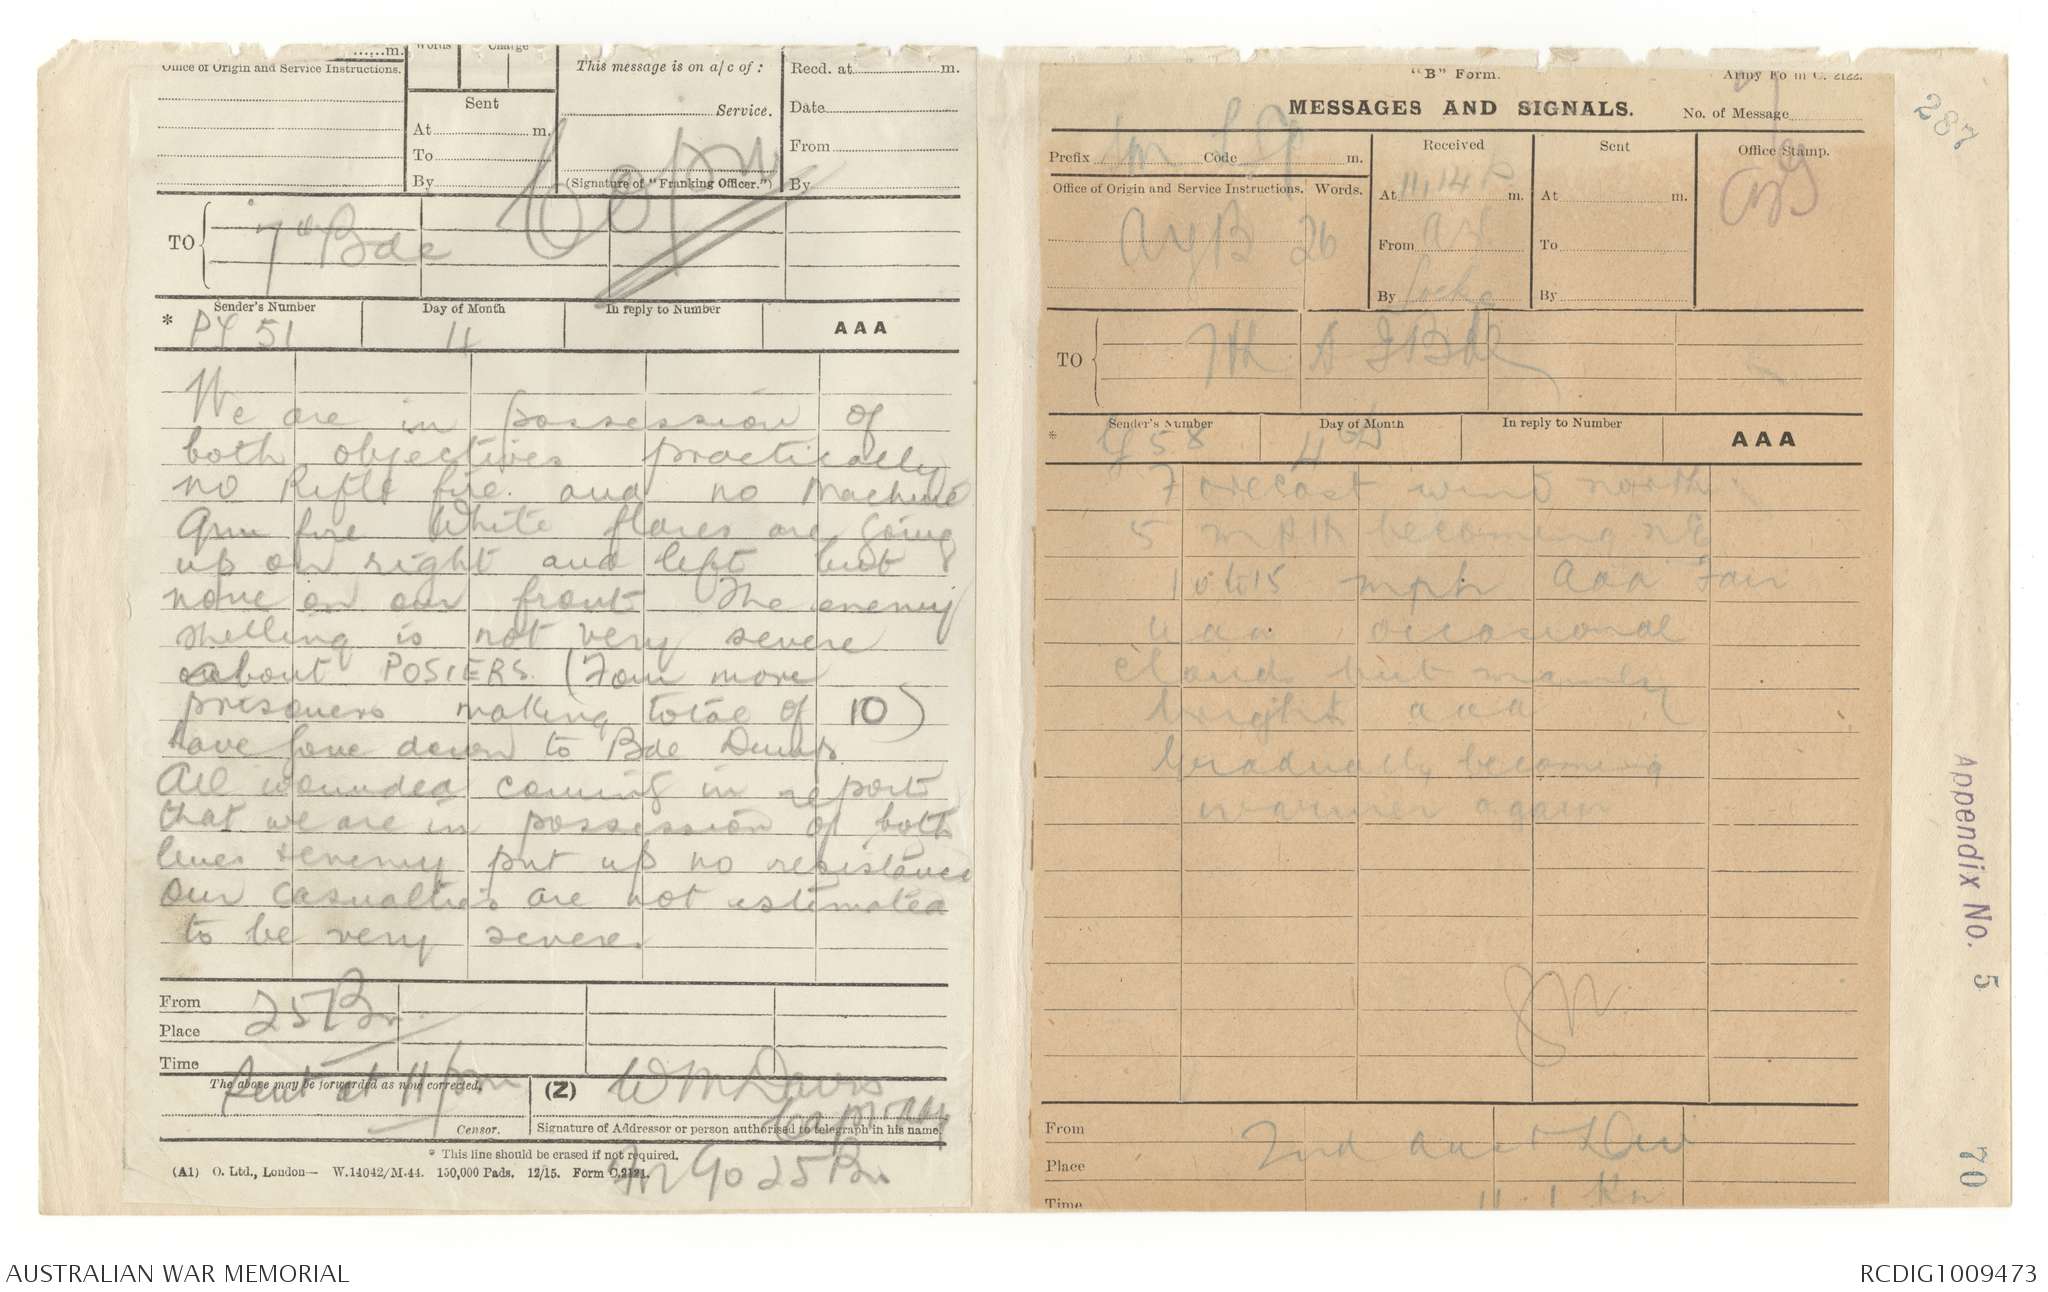 ......m.
Words
Charge
Office of Origin and Service Instructions.
Sent
At m.
To
By
This message is on a/c of :
Service.
(Signature of "Franking Officer.")
Recd. at m.
Date
From
By
Copy
TO
7th Bde
Sender's Number
Day of Month
In reply to Number
* PY 51
4
AAA
We are in possession of
both objectives practically
no Rifle fire and no Machine
Gun fire White flares are going
up on right and left but
none on our front The enemy
shelling is not very severe
about POSIERS. (Four more
prisoners making total of 10)
have gone down to Bde Dump.
All wounded coming in report
that we are in possession of both
lines & enemy put up no resistance
Our casualties are not estimated
to be very severe.
From
25 Bn
Place
Time
The above may be forwarded as now corrected.
Sent at 11 pm
Censor.
(Z)
W M Davis
Capt Adj
Signature of Addressor or person authorised to telegraph in his name.
* This line should be erased if not required.
for Co 25 Bn.
(A1) O. Ltd., London— W.14042/M.44. 150,000 Pads. 12/15. Form C.2121.
"B" Form.
Army Form C. 2122.
MESSAGES AND SIGNALS.
No. of Message
287
Prefix Sm Code m.
Received
Sent
Office Stamp.
Office of Origin and Service Instructions.
Words.
At 11.14 p m.
At m.
AYB 26
From
To
By
By
TO
7th A I Bde
Sender's Number
Day of Month
In reply to Number
* 58
4th
AAA
Forecast wind north
5 mph becoming NE
10 to 15 mph aaa Fair
aaa occasional
cloud but mainly
bright aaa
Gradually becoming
warmer again
From
2nd Aust Div
Place
Time
11.1
Appendix No. 5
70
AUSTRALIAN WAR MEMORIAL
RCDIG1009473